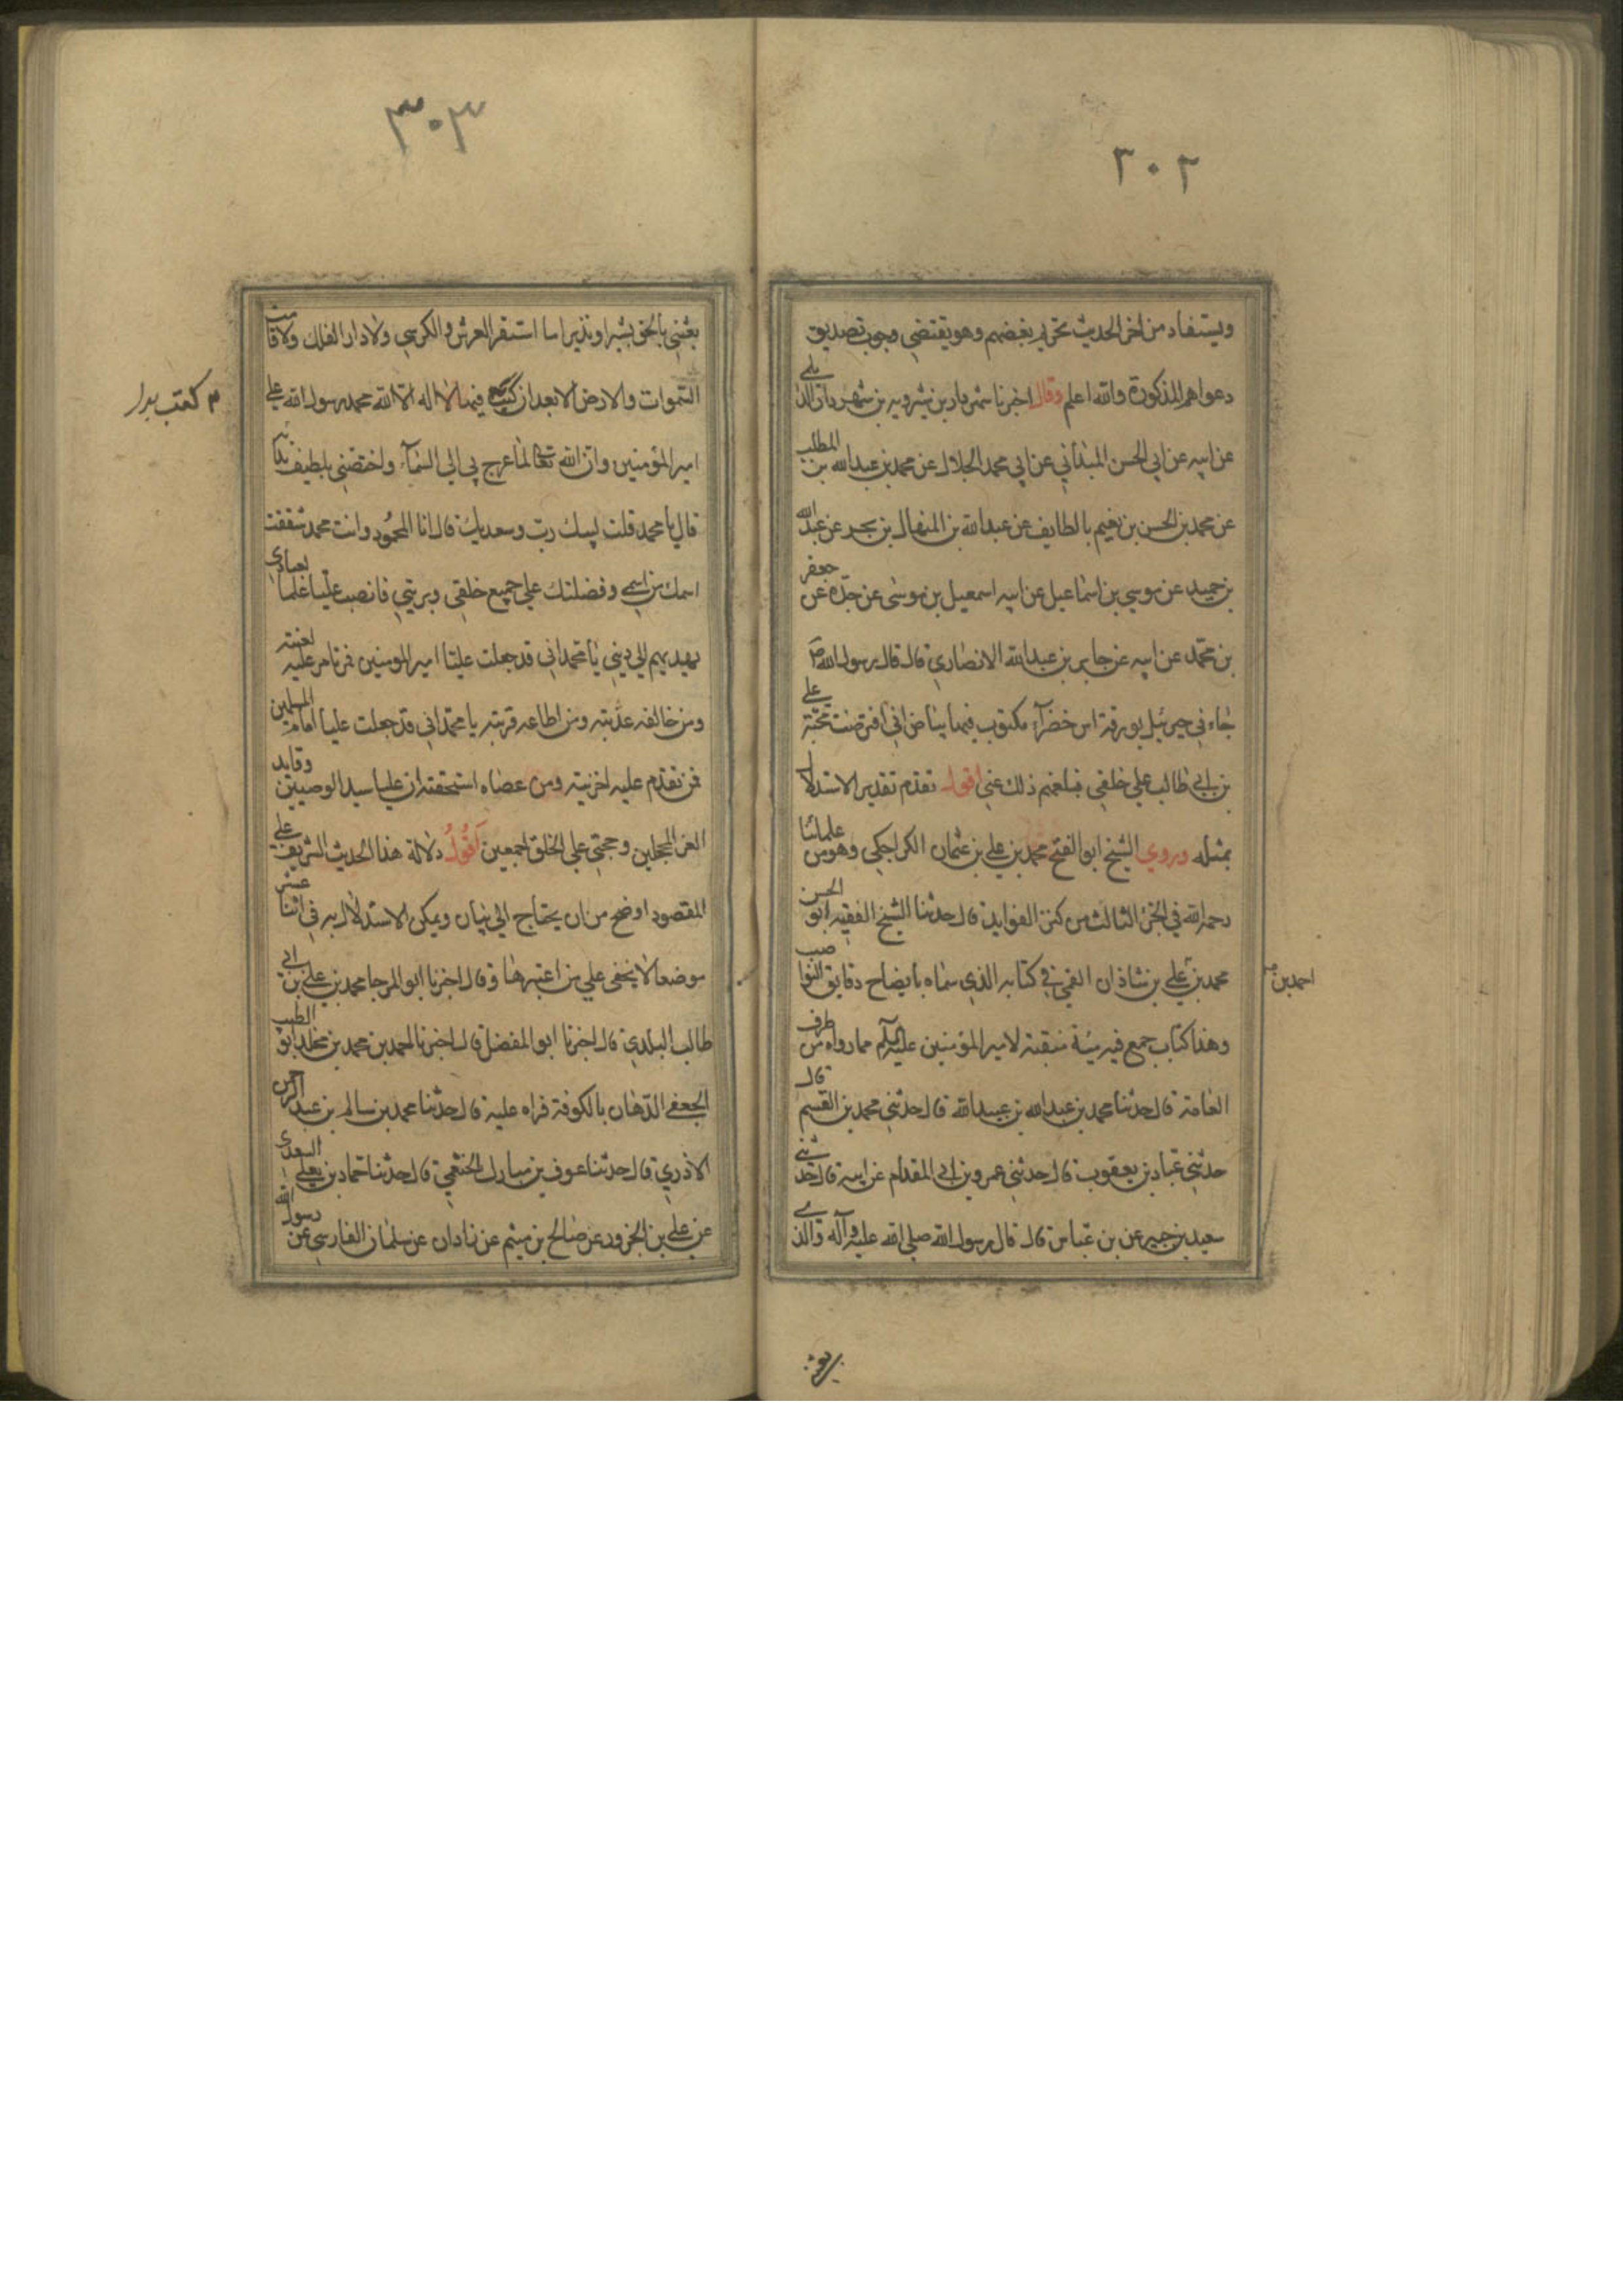 ٢٠٢
ويستفاد من اخر الحديث تحريم بغضهم وهو يقتضي وجوب تصديق
دعواهم المذكورة والله اعلم وقال اخبرنا شهردار بن شيرويه بن شهردار الديلمي
عن ابيه عن ابي الحسن الميداني عن ابي محمد الجلال عن محمد بن عبد الله بن المطلب
عن محمد بن الحسن بن نعيم بالطايف عن عبد الله بن المنهال بن بحر عن عبد الله
بن حميد عن موسي بن اسماعيل عن ابيه اسمعيل بن موسى عن جده عن جعفر
بن محمد عن ابيه عن جابر بن عبد الله الانصاري قال قال رسول الله ص
جاءني جبرئيل بورقة اس خضرآء مكتوب فيها ببياض اني افترضت محبة علي
بن ابي طالب علي خلقي فبلغهم ذلك عني اقول تقدم تقدير الاستدلال
بمثله وروي الشيخ ابو الفتح محمد بن علي بن عثمان الكراجكي وهو من علمائنا
رحمه الله في الجزء الثالث من كنز الفوايد قال حدثنا الشيخ الفقيه ابو الحسن
محمد بن علي بن شاذان القمي في كتابه الذي سماه بايضاح دقايق النواصب
احمد بن
وهذا كتاب جمع فيه مئة منقبة لامير المؤمنين عليه السلم مما رواه من طرف
العامة قال حدثنا محمد بن عبد الله بن عبيد الله قال حدثني محمد بن القسم قال
حدثني عباد بن يعقوب قال حدثني عمرو بن ابي المقدام عن ابيه قال حدثني
سعيد بن جبير عن بن عباس قال قال رسول الله صلي الله عليه وآله والذي
٣٠٣
بعثني بالحق بشيرا ونذيرا ما استقر العرش والكرسي ولا دار الفلك ولا قامت
السموات والارض الا بعد ان كتب فيها لا اله الا الله محمد رسول الله علي
امير المؤمنين وان الله تعالى لما عرج بي الي السمآء واختصني بلطيف ندائه
قال يا محمد قلت لبيك رب وسعديك قال انا المحمود وانت محمد شققت
اسمك من اسمي وفضلتك علي جميع خلقي وبريتي فانصب عليا علما لعبادي
يهديهم الي ديني يا محمد اني قد جعلت عليا امير المومنين فمن تامر عليه لعنته
ومن خالفه عذبته ومن اطاعه قربته يا محمد اني قد جعلت عليا امام المسلمين
فمن تقدم عليه اخزيته ومن عصاه استحقته ان عليا سيد الوصيين وقايد
الغر المحجلين وحجتي علي الخلق اجمعين اقول دلالة هذا الحديث الشريف علي
المقصود اوضح من ان يحتاج الي بيان ويمكن الاستدلال به في اثنا عشر
موضعا لا يخفى علي من اعتبرها وقال اخبرنا ابو المرجا محمد بن علي بن ابي
طالب البلدي قال اخبرنا ابو المفضل قال اخبرنا احمد بن محمد بن مخلد ابو الطيب
الجعفي الدهان بالكوفة قراه عليه قال حدثنا محمد بن سالم بن عبد الرحمن
الاذري قال حدثنا عوف بن مبارك الخثعمي قال حدثنا حماد بن يعلي السعدي
عن علي بن الحزور عن صالح بن ميثم عن زادان عن سلمان الفارسي عن رسول الله